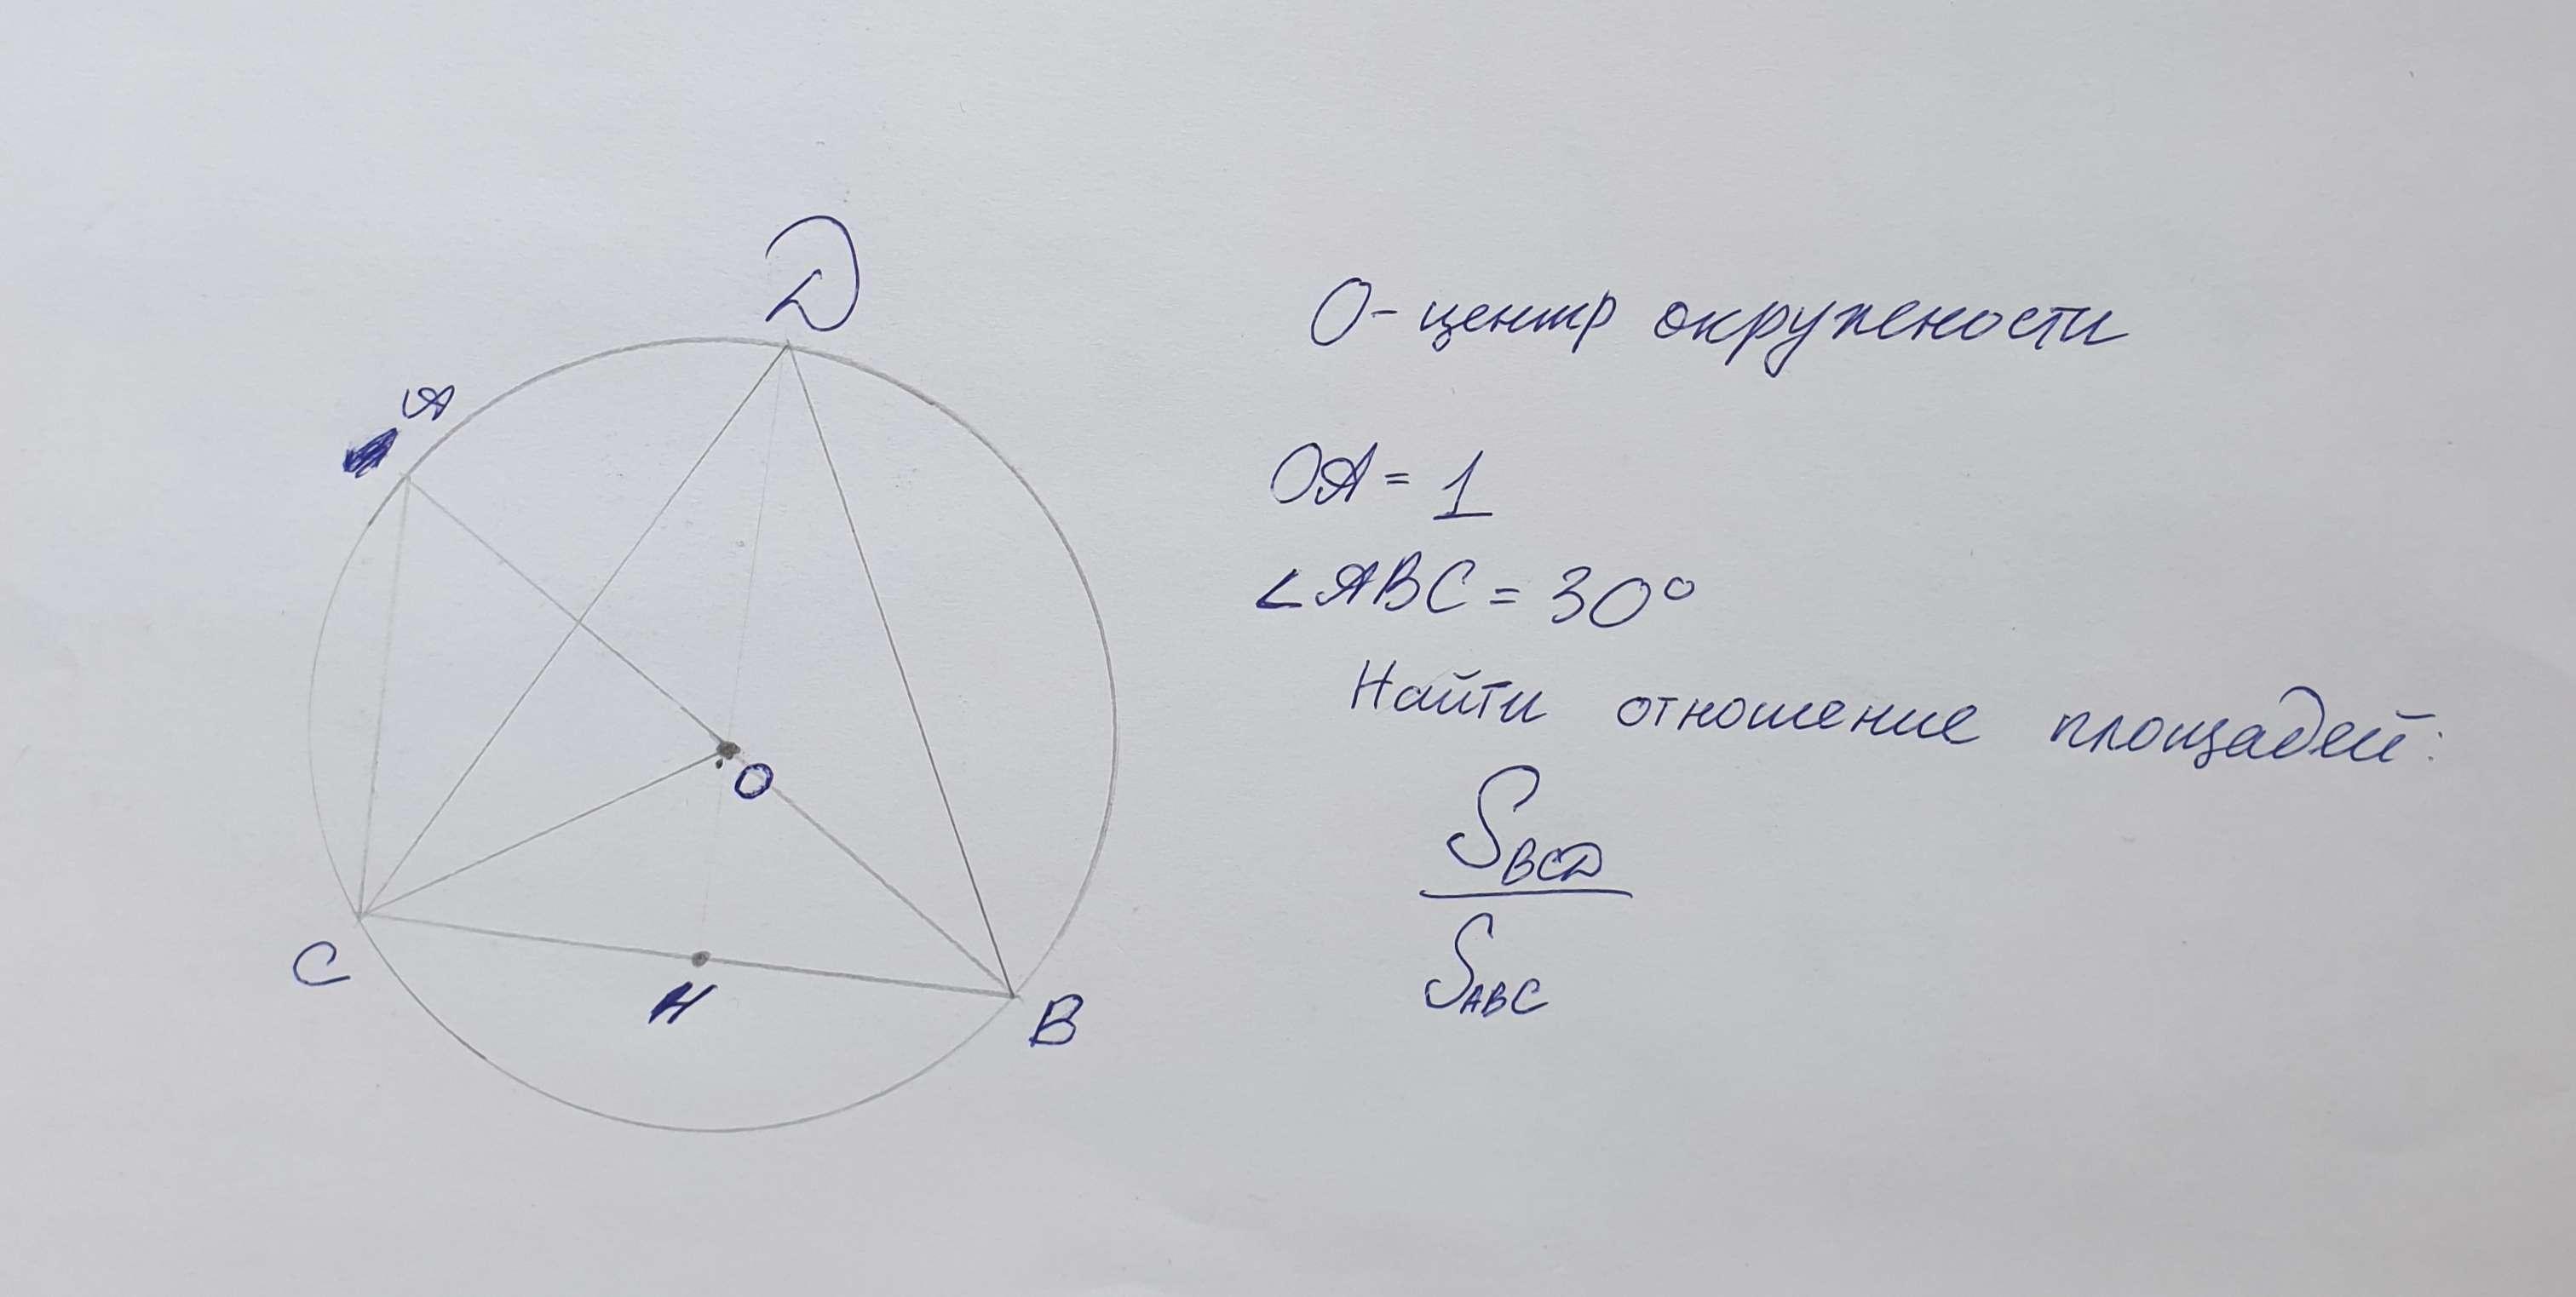 D
A
O
C
H
B
O - центр окружности
OA = 1
∠ABC = 30°
Найти отношение площадей:
S_BCD
S_ABC